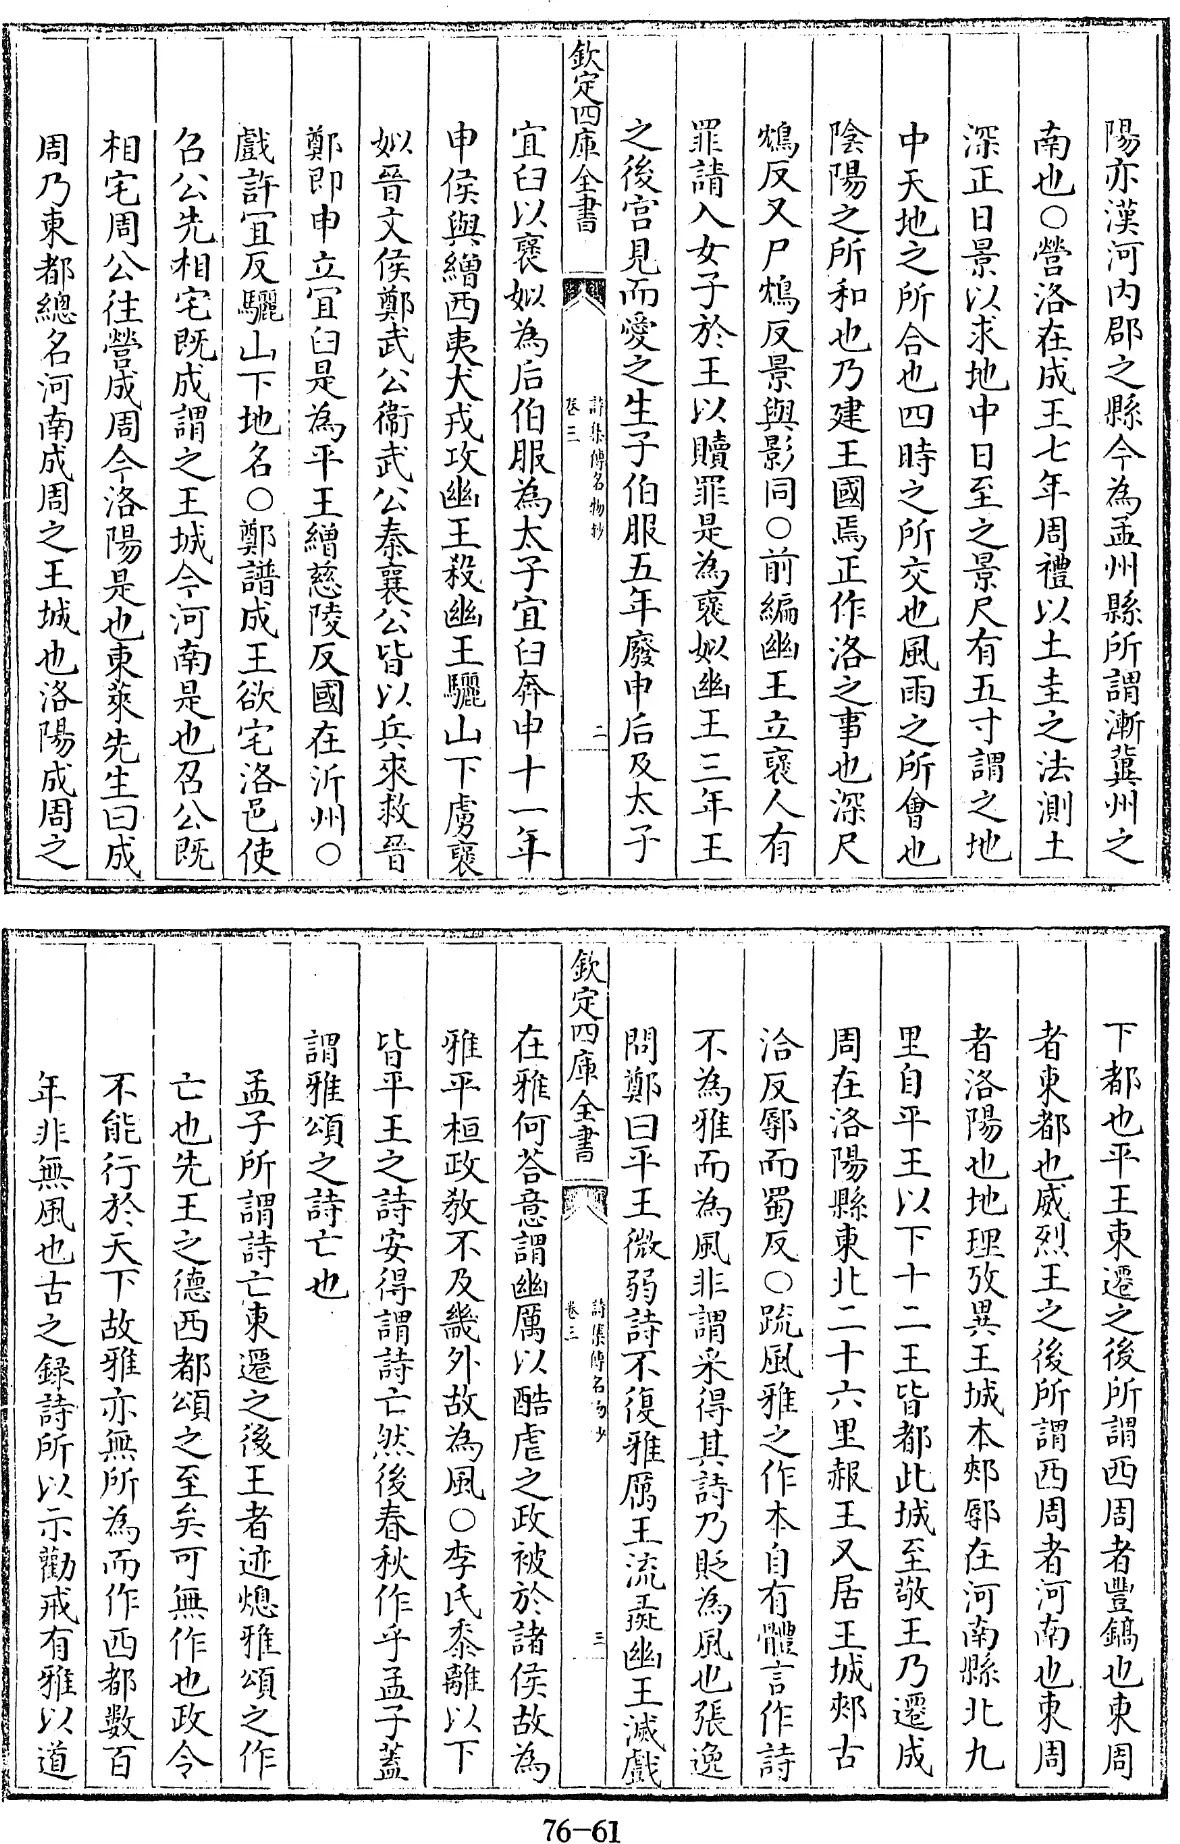 陽亦漢河内郡之縣今為孟州縣所謂漸冀州之
南也○營洛在成王七年周禮以土圭之法測土
深正日景以求地中日至之景尺有五寸謂之地
中天地之所合也四時之所交也風雨之所會也
陰陽之所和也乃建王國焉正作洛之事也深尺
鴆反又尸鴆反景與影同○前編幽王立襃人有
罪請入女子於王以贖罪是為襃姒幽王三年王
之後宫見而愛之生子伯服五年廢申后及太子
欽定四庫全書
詩集傳名物鈔
卷三
二
宜臼以襃姒為后伯服為太子宜臼奔申十一年
申侯與繒西夷犬戎攻幽王殺幽王驪山下虜襃
姒晉文侯鄭武公衞武公秦襄公皆以兵來救晉
鄭即申立宜臼是為平王繒慈陵反國在沂州○
戲許宜反驪山下地名○鄭譜成王欲宅洛邑使
召公先相宅既成謂之王城今河南是也召公既
相宅周公往營成周今洛陽是也東萊先生曰成
周乃東都總名河南成周之王城也洛陽成周之
下都也平王東遷之後所謂西周者豐鎬也東周
者東都也威烈王之後所謂西周者河南也東周
者洛陽也地理攷異王城本郟鄏在河南縣北九
里自平王以下十二王皆都此城至敬王乃遷成
周在洛陽縣東北二十六里赧王又居王城郟古
洽反鄏而蜀反○疏風雅之作本自有體言作詩
不為雅而為風非謂采得其詩乃貶為風也張逸
問鄭曰平王微弱詩不復雅厲王流彘幽王滅戲
欽定四庫全書
詩集傳名物鈔
卷三
三
在雅何荅意謂幽厲以酷虐之政被於諸侯故為
雅平桓政教不及畿外故為風○李氏黍離以下
皆平王之詩安得謂詩亡然後春秋作乎孟子蓋
謂雅頌之詩亡也
孟子所謂詩亡東遷之後王者迹熄雅頌之作
亡也先王之德西都頌之至矣可無作也政令
不能行於天下故雅亦無所為而作西都數百
年非無風也古之錄詩所以示勸戒有雅以道
76-61